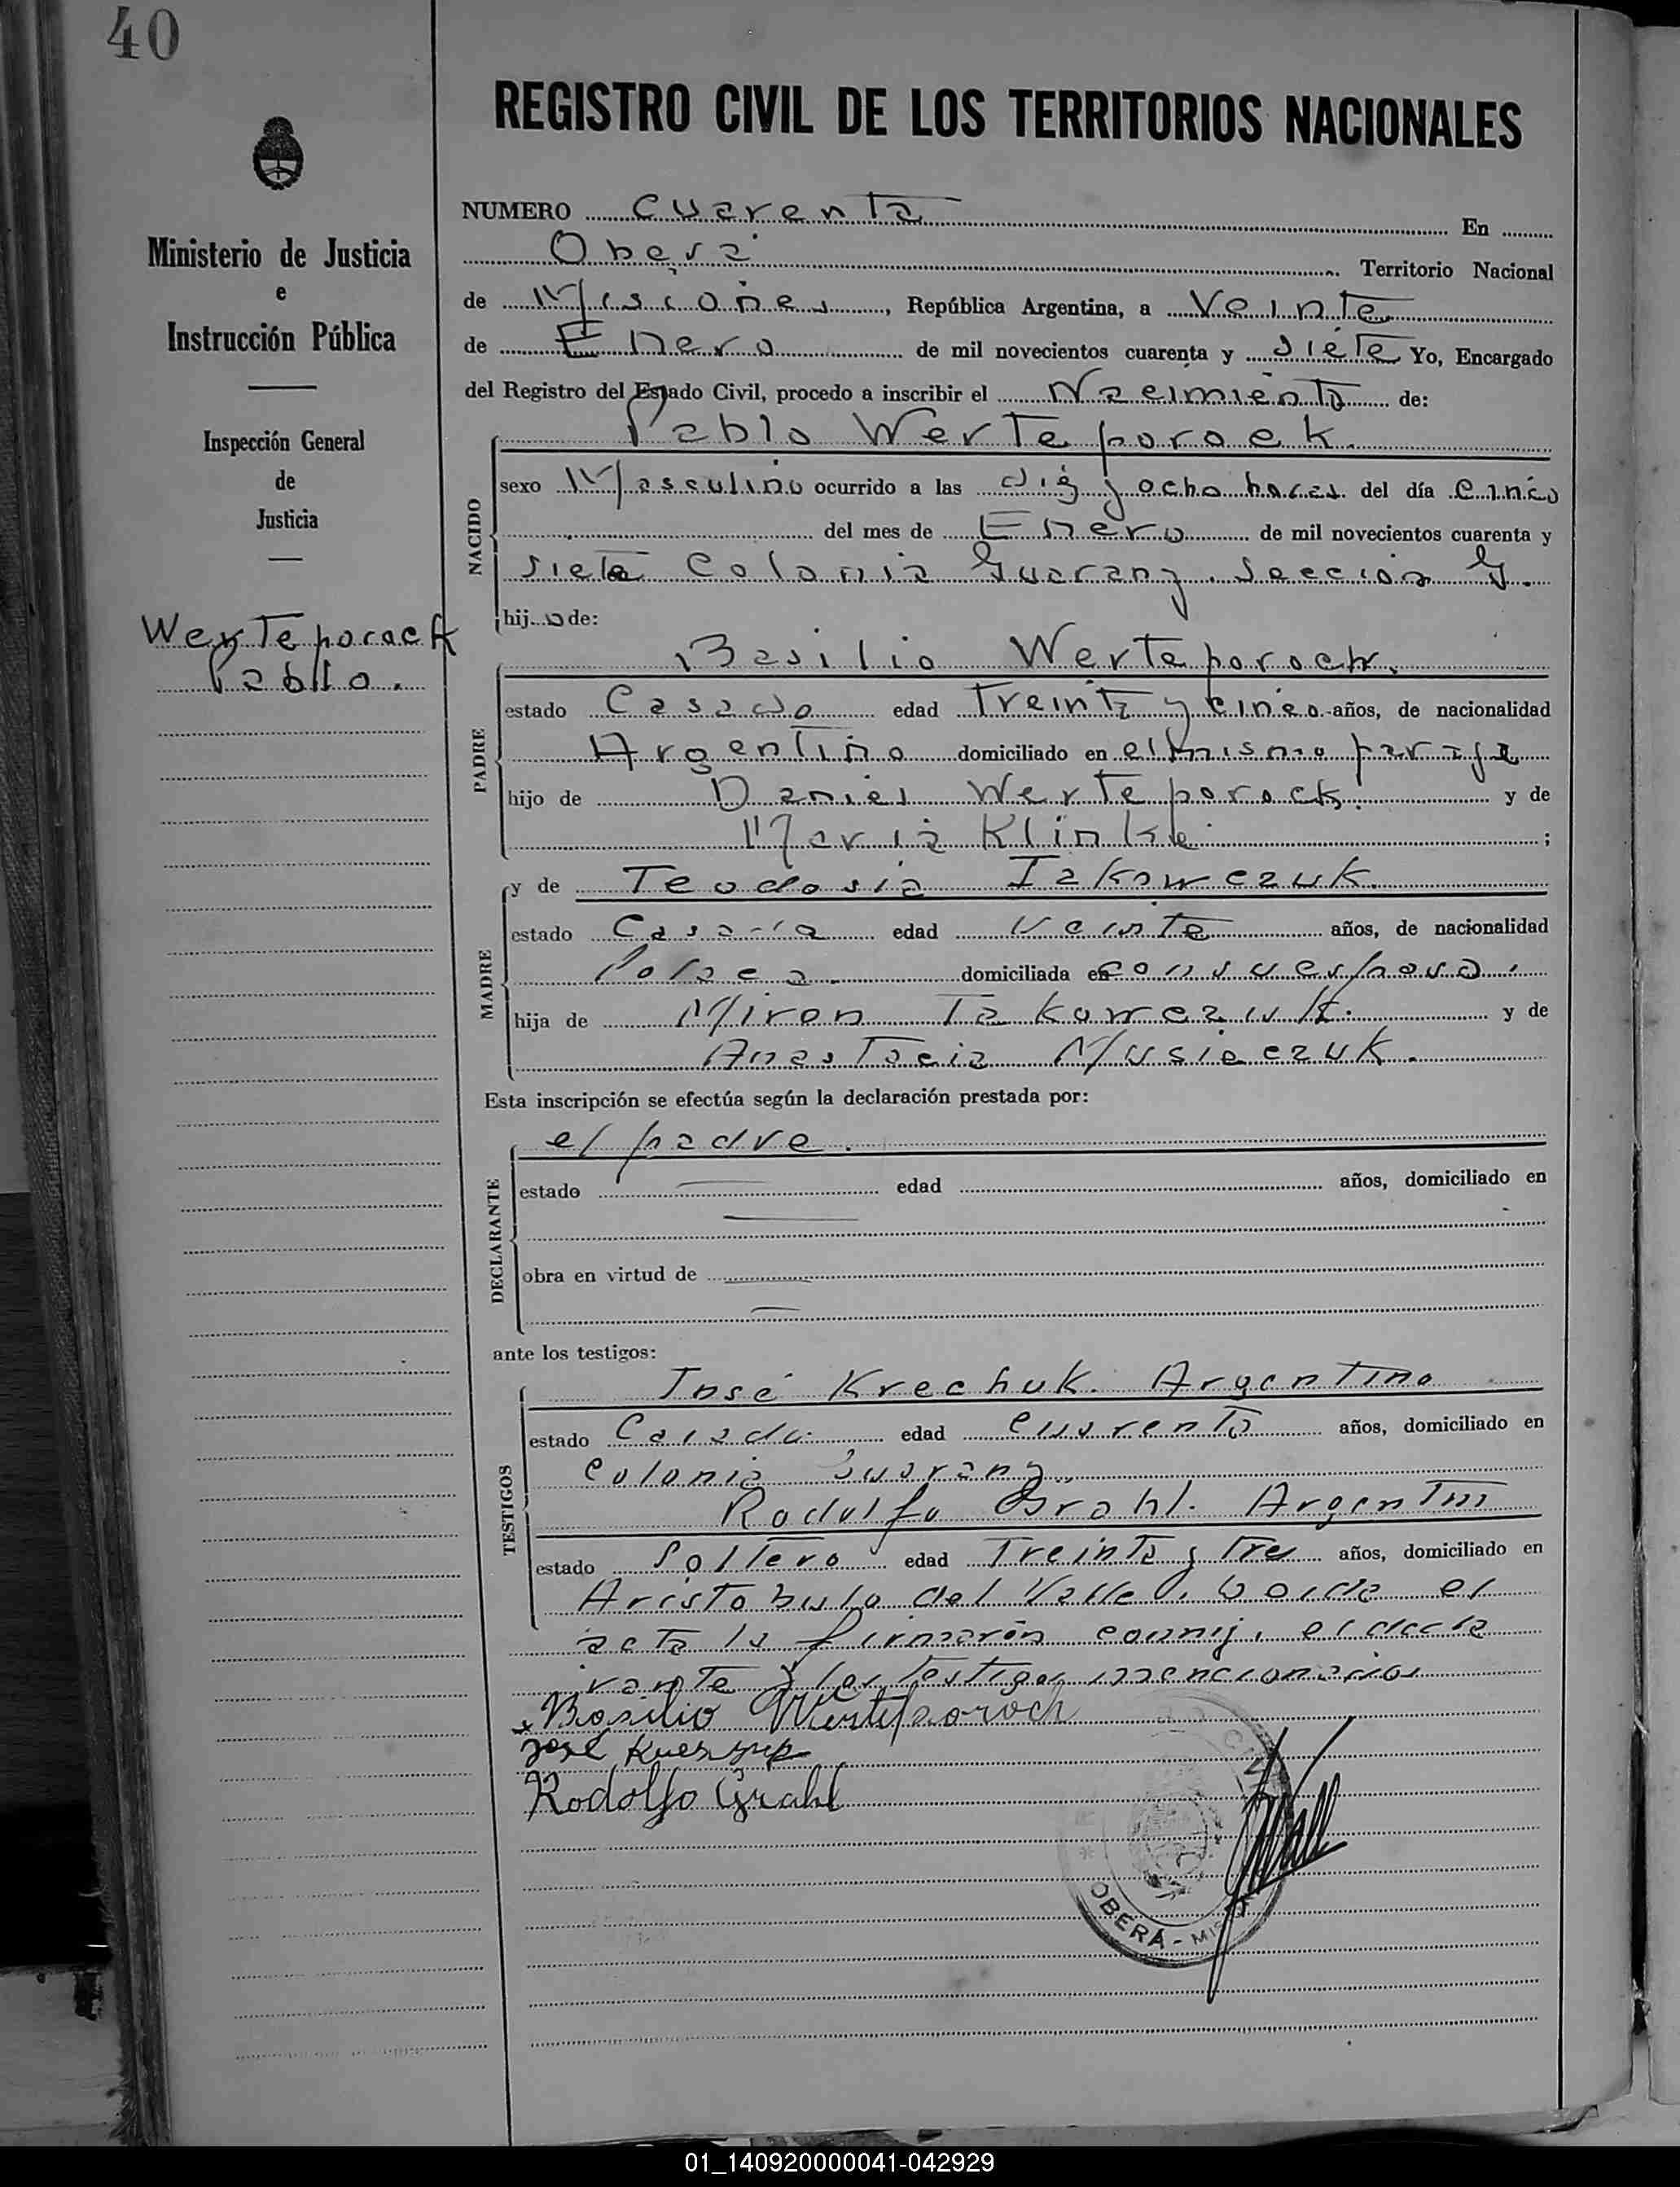 40
REGISTRO CIVIL DE LOS TERRITORIOS NACIONALES
Ministerio de Justicia
e
Instrucción Pública
Inspección General
de
Justicia
Werteporack
Pablo.
NUMERO cuarenta En
Oberá Territorio Nacional
de Misiones, República Argentina, a Veinte
de Enero de mil novecientos cuarenta y siete Yo, Encargado
del Registro del Estado Civil, procedo a inscribir el Nacimiento de:
Pablo Werteporock.
NACIDO
sexo Masculino ocurrido a las diez y ocho horas del día cinco
del mes de Enero de mil novecientos cuarenta y
siete Colonia Guarany. Sección G.
hijo de:
Basilio Werteporoch.
PADRE
estado Casado edad treinta y cinco años, de nacionalidad
Argentino domiciliado en el mismo paraje
hijo de Daniel Werteporock. y de
Maria Klinke ;
y de Teodosia Iakowczuk.
MADRE
estado Casada edad Veinte años, de nacionalidad
Polaca. domiciliada en con su esposo.
hija de Miron Iakowczuk. y de
Anastacia Musiaczuk.
Esta inscripción se efectúa según la declaración prestada por:
el padre.
DECLARANTE
estado edad años, domiciliado en
obra en virtud de
ante los testigos:
José Krechuk. Argentino
TESTIGOS
estado Casado edad cuarenta años, domiciliado en
Colonia Guarany.
Rodolfo Grahl. Argentino
estado Soltero edad Treinta y tres años, domiciliado en
Aristobulo del Valle. Leida el
acta la firmarón conmigo, el decla
rante y los testigos mencionados
Basilio Werteporoch
José
Rodolfo Grahl
OBERÁ - MIS
01_140920000041-042929